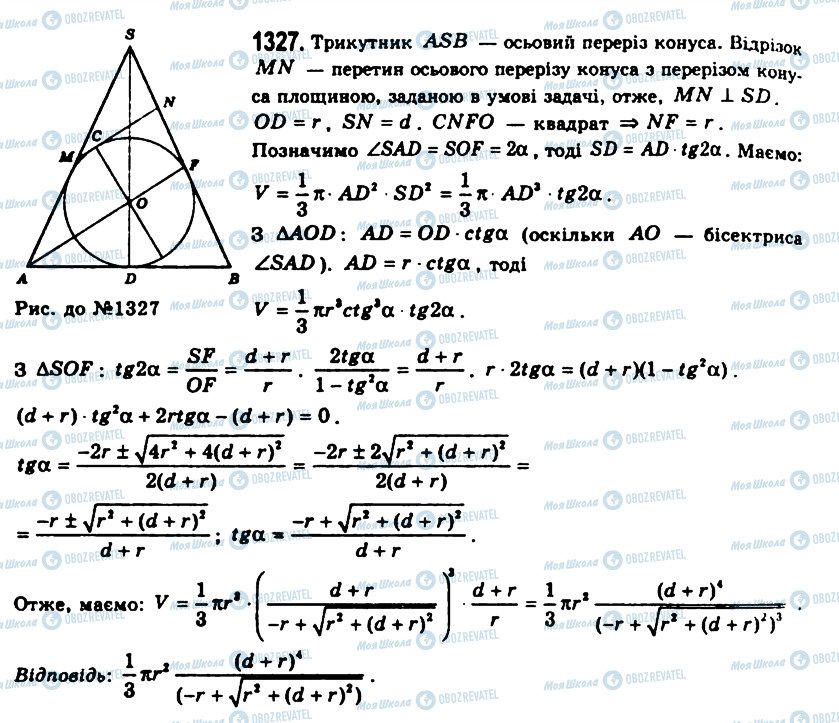 1327. Трикутник ASB — осьовий переріз конуса. Відрізок
MN — перетин осьового перерізу конуса з перерізом кону-
са площиною, заданою в умові задачі, отже, MN ⊥ SD.
OD = r, SN = d. CNFO — квадрат ⇒ NF = r.
Позначимо ∠SAD = SOF = 2α, тоді SD = AD · tg2α. Маємо:
V = 1/3 π · AD² · SD² = 1/3 π · AD³ · tg2α.
З ΔAOD: AD = OD · ctgα (оскільки AO — бісектриса
∠SAD). AD = r · ctgα, тоді
V = 1/3 πr³ctg³α · tg2α.
S
N
C
M
F
O
A D B
Рис. до №1327
З ΔSOF: tg2α = SF/OF = (d + r)/r. 2tgα/(1 − tg²α) = (d + r)/r. r · 2tgα = (d + r)(1 − tg²α).
(d + r) · tg²α + 2rtgα − (d + r) = 0.
tgα = (−2r ± √(4r² + 4(d + r)²))/(2(d + r)) = (−2r ± 2√(r² + (d + r)²))/(2(d + r)) =
= (−r ± √(r² + (d + r)²))/(d + r); tgα = (−r + √(r² + (d + r)²))/(d + r).
Отже, маємо: V = 1/3 πr³ · ((d + r)/(−r + √(r² + (d + r)²)))³ · (d + r)/r = 1/3 πr² (d + r)⁴/(−r + √(r² + (d + r)²)³.
Відповідь: 1/3 πr² (d + r)⁴/(−r + √(r² + (d + r)²).
МояШкола OBOZREVATEL